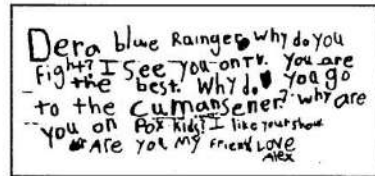 Dera blue Rainger why do you
Fight? I See you on TV. You are
the best. Why do you go
to the Cumansener? why are
you on Pox Kids? I like your show
Are you my Friend LOVE
Alex